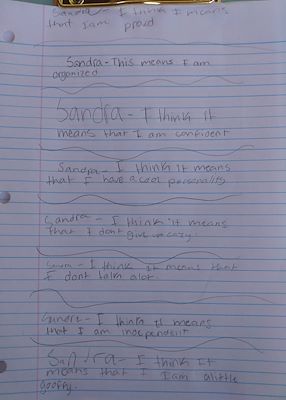 Sandra - I think I means
that I am proud
Sandra - This means I am
organized
Sandra - I think it
means that I am confident
Sandra - I think it means
that I have a cool personality
Sandra - I think it means
that I don't give up easy.
I think it means that
I dont talk alot.
Sandra - I think it means
that I am independent
Sandra - I think It
means that I am alittle
gooffy.